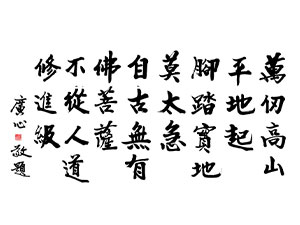 萬仞高山
平地起
腳踏實地
莫太急
自古無有
佛菩薩
不從人道
修進級
廣心敬題